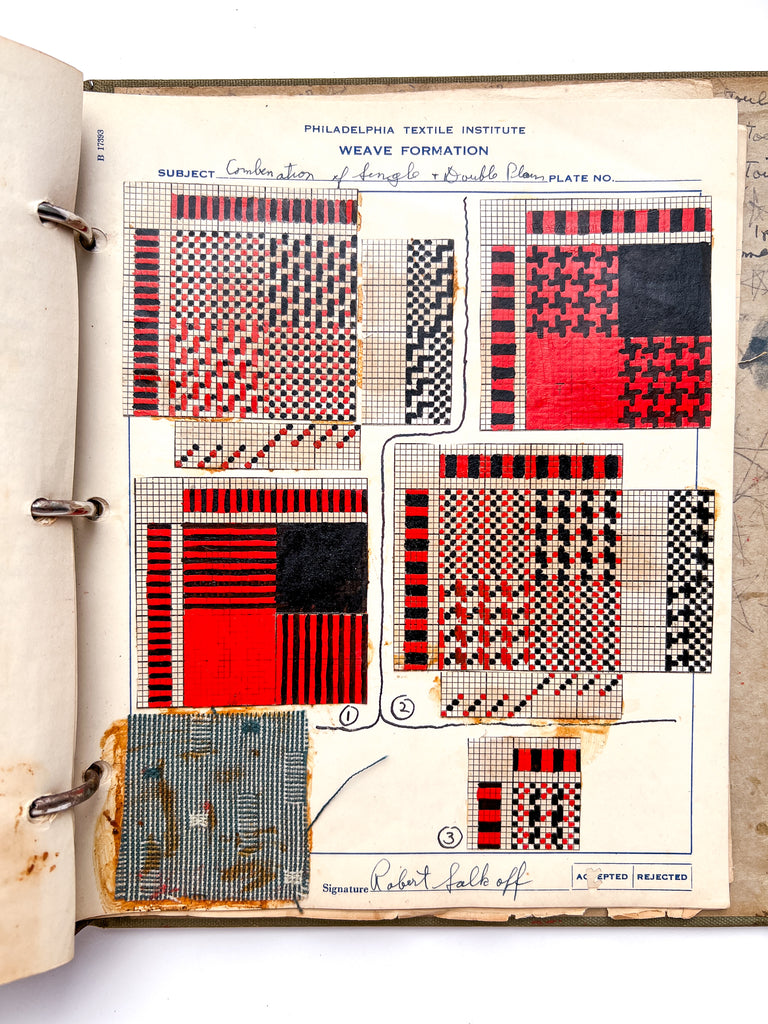 PHILADELPHIA TEXTILE INSTITUTE
WEAVE FORMATION
B 17393
SUBJECT Combenation of Single + Double Plain PLATE NO.
1
2
3
Signature Robert Falkoff
ACCEPTED REJECTED